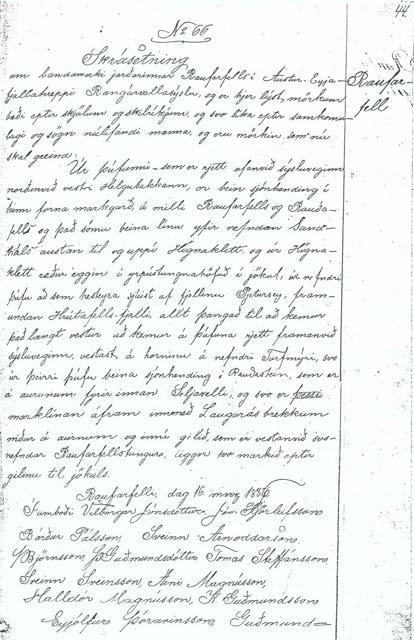 44
No 66
Skrásetning
um landamerki jarðarinnar Raufarfells í Austur-Eyja-
fjallahreppi Rangárvallasýslu, og er hjer lýst mörkum
bæði eptir skjölum og skilríkjum, og svo líka eptir samkomu-
lagi og sögn núlifandi manna, og eru mörkin, sem nú
skal greina:
Raufar-
fell
Úr þúfunni sem er rjett ofanvið sýsluveginn
norðanvið vestri Helgubakkann, er bein sjónhending í
hinn forna markgarð, á milli Raufarfells og Rauða-
fells og það sömu beina línu yfir nefndan Sand-
austan til og uppí Högnaklett, og úr Högna-
klett ræður eggin í jökul; úr nefndri
þúfu að sem heskyra af fjallinu Pjetursey, fram-
undan Hrútafells-fjalli, allt þangað til að kemur
það langt vestur að kemur á þúfuna rjett framanvið
sýsluveginn, vestast á horninu á nefndri Torfmýri, svo
úr þeirri þúfu beina sjónhending í Rauðastein, sem er
á aurunum fyrir innan Seljavelli, og svo er þessi
marklínan áfram innmeð Laugarásbrekkum
niður á aurnum og inní gilið, sem er vestanvið svo-
nefndar Raufarfellstungur, liggur svo markið eptir
gilinu til jökuls.
Raufarfelli, dag 16 marz 1886
Í umboði Vilborgar Jónsdóttur Jón Hjörleifsson
Bárður Pálsson, Sveinn Arnoddarson,
Björnsson, Guðmundsdóttir Tómas Stefánsson
Sveinn Sveinsson, Árni Magnússon,
Halldór Magnússon, K. Guðmundsson
Eyjólfur Þórarinsson Guðmund-